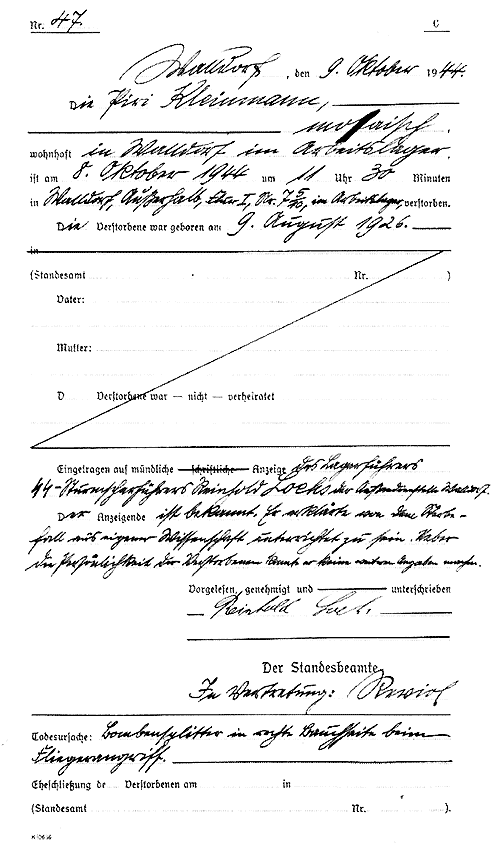 Nr. 47. C
Walldorf, den 9. Oktober 1944.
Die Piri Kleinmann,
mosaisch.
wohnhaft in Walldorf im Arbeitslager.
ist am 8. Oktober 1944 um 11 Uhr 30 Minuten
in Walldorf, Außerhalb, Flur I, Nr. 7 5/10, im Arbeitslager, verstorben.
Die Verstorbene war geboren am 9. August 1926.
in
(Standesamt Nr. )
Vater:
Mutter:
D Verstorbene war — nicht — verheiratet
Eingetragen auf mündliche schriftliche Anzeige des Lagerführers
44-Sturmscharführers Reinhold Locks der Außendienststelle Walldorf.
Der Anzeigende ist bekannt. Er erklärte von dem Sterbe-
fall aus eigener Wissenschaft unterrichtet zu sein. Ueber
die Persönlichkeit der Verstorbenen kannt er keine weitere Angaben machen.
Vorgelesen, genehmigt und unterschrieben
Reinhold
Der Standesbeamte
In Vertretung:
Todesursache: Bombensplitter in rechte Bauchseite beim
Fliegerangriff.
Eheschließung de Verstorbenen am in
(Standesamt Nr. ).